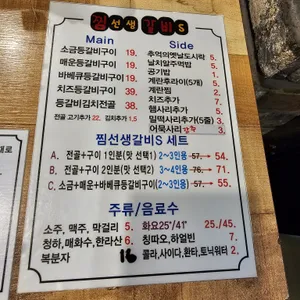 찜선생갈비S
Main
소금등갈비구이 19.
매운등갈비구이 19.
바베큐등갈비구이 19.
치즈등갈비구이 39.
등갈비김치전골 38.
전골 고기추가 22. 김치추가 1.5
Side
추억의옛날도시락 5.
날치알주먹밥 5.
공기밥 1.
계란후라이(5개) 5.
계란찜 2.
치즈추가 7.
햄사리추가 5.
밀떡사리추가(5줄) 3.
어묵사리 3.
찜선생갈비S 세트
A. 전골+구이 1인분(맛 선택1) 2~3인용 57.→ 54.
B. 전골+구이 2인분(맛 선택2) 3~4인용 76.→ 71.
C. 소금+매운+바베큐등갈비구이(2~3인용) 57.→ 55.
주류/음료수
소주, 맥주, 막걸리 5.
청하, 매화수, 한라산 6.
복분자 16
화요25°/41° 25./45.
칭따오, 하얼빈 7.
콜라,사이다,환타,토닉워터 2.